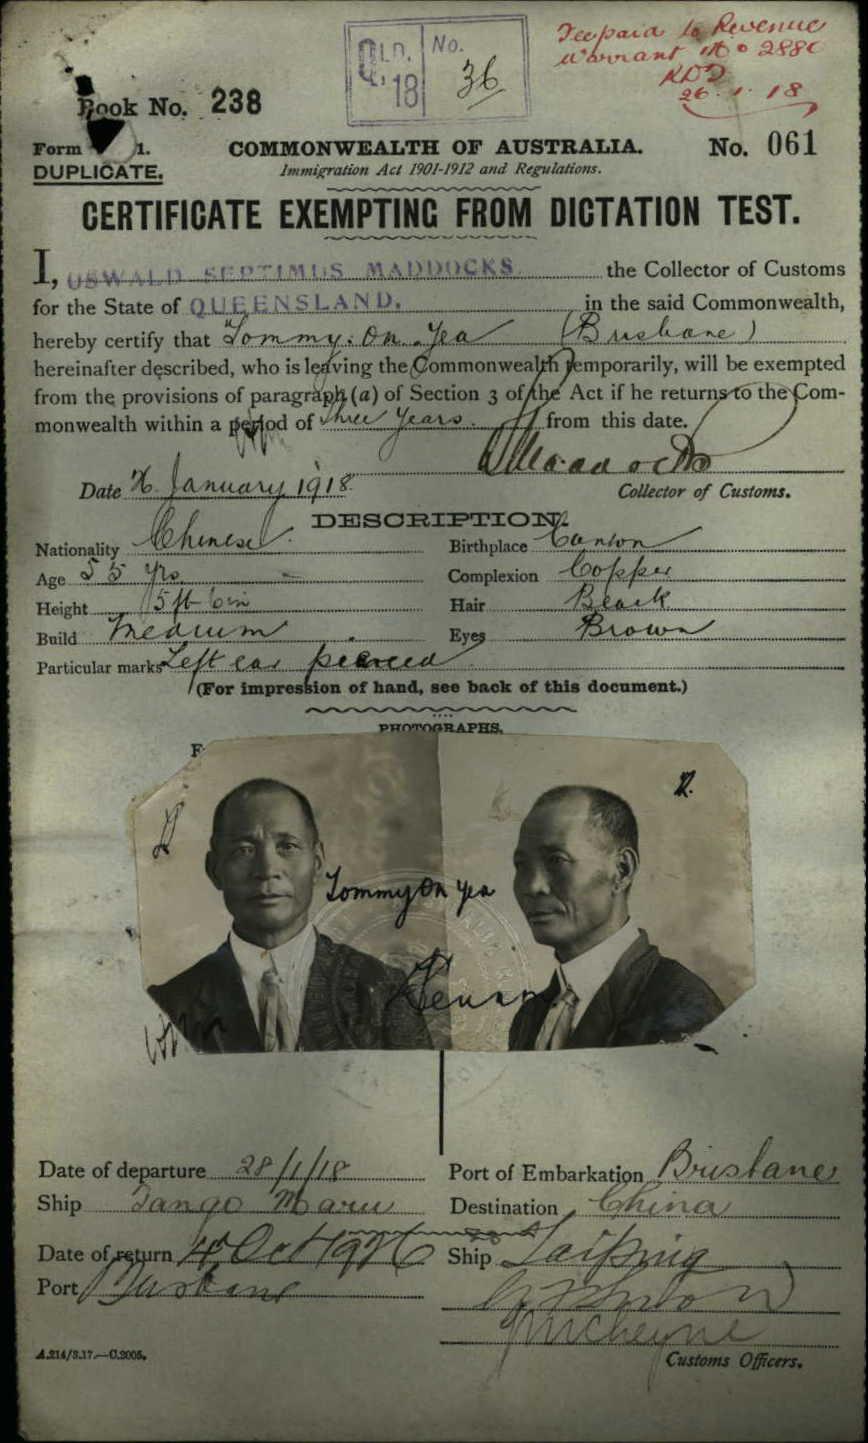 Fee paid to Revenue
Warrant No 288
26.1.18
QLD. No.
18 36
Book No. 238
Form 1.
DUPLICATE.
COMMONWEALTH OF AUSTRALIA.
No. 061
Immigration Act 1901-1912 and Regulations.
CERTIFICATE EXEMPTING FROM DICTATION TEST.
I, OSWALD SEPTIMUS MADDOCKS the Collector of Customs
for the State of QUEENSLAND. in the said Commonwealth,
hereby certify that Tommy On Yea (Brisbane)
hereinafter described, who is leaving the Commonwealth temporarily, will be exempted
from the provisions of paragraph (a) of Section 3 of the Act if he returns to the Com-
monwealth within a period of three years. from this date.
Maddocks
Date January 1918 Collector of Customs.
DESCRIPTION.
Nationality Chinese Birthplace Canton
Age 55 yrs Complexion Copper
Height 5 ft 6 in Hair Black
Build Medium Eyes Brown
Particular marks Left ear pierced
(For impression of hand, see back of this document.)
PHOTOGRAPHS.
F
Tommy On Yea
Date of departure 28/1/18 Port of Embarkation Brisbane
Ship Tango Maru Destination China
Date of return 4 Oct 1926 Ship Taiping
Port Brisbane
A.214/3.17.—C.2005. Customs Officers.